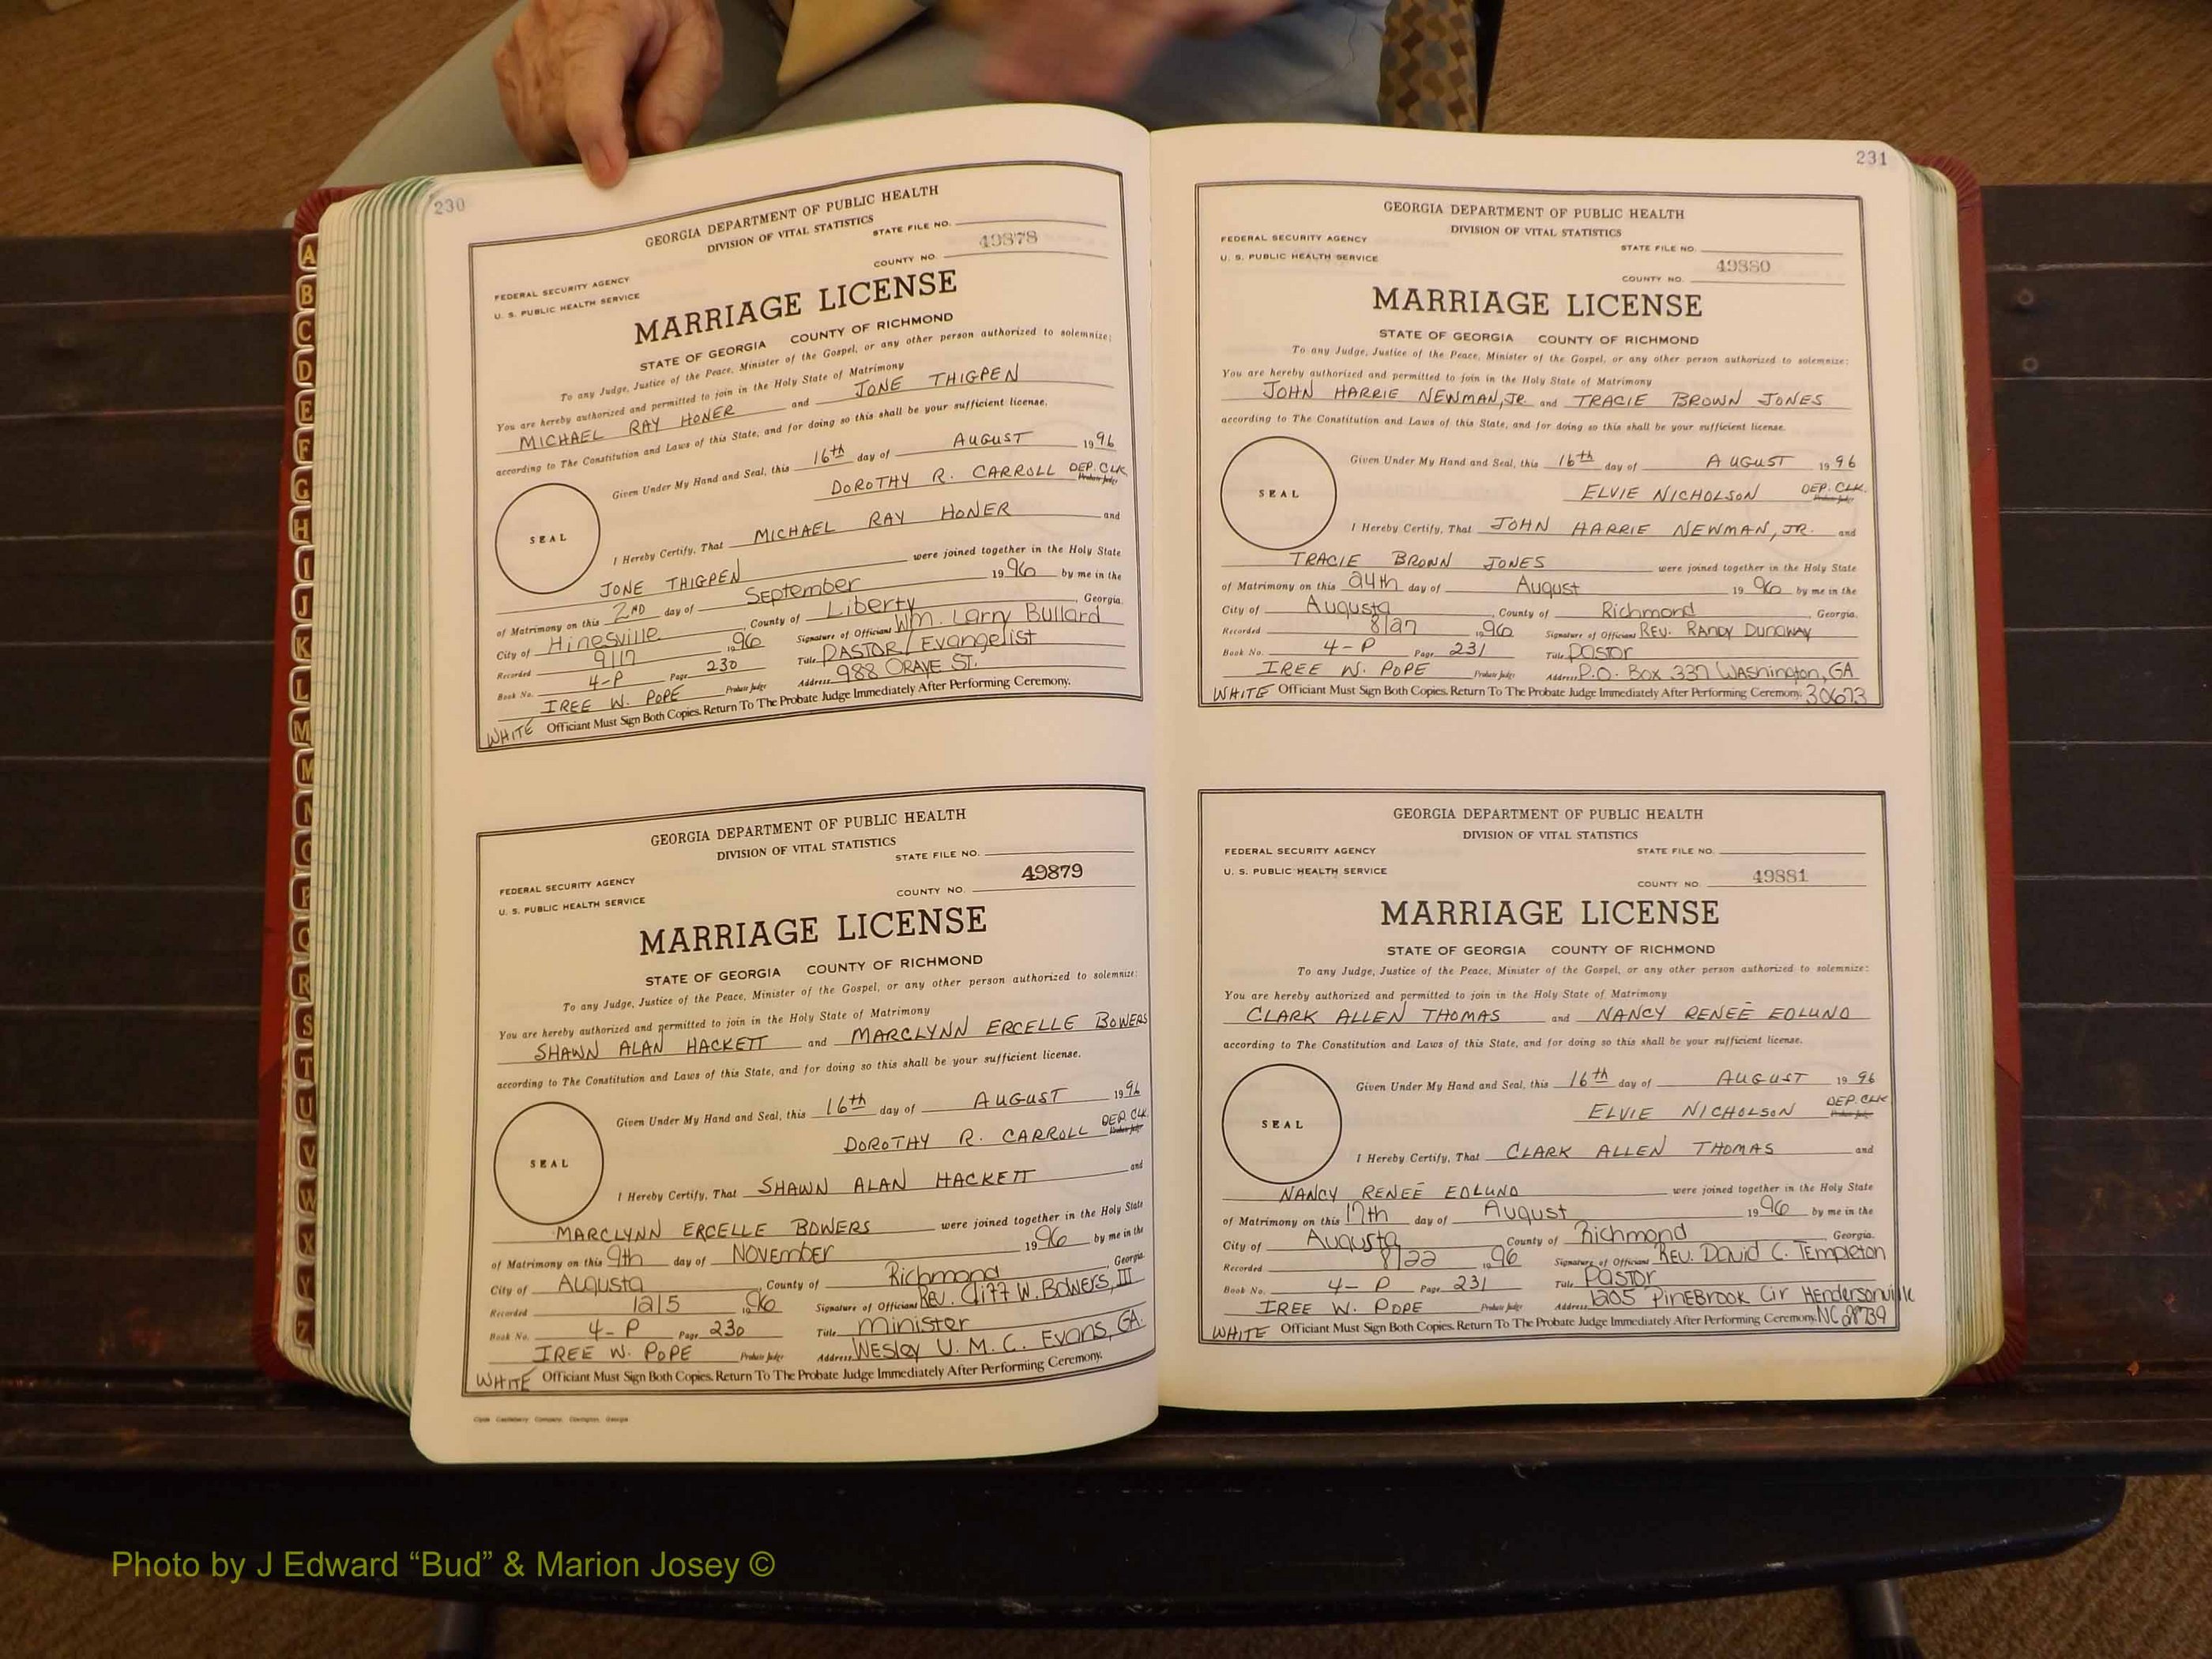 230
GEORGIA DEPARTMENT OF PUBLIC HEALTH
DIVISION OF VITAL STATISTICS
STATE FILE NO.
49878
COUNTY NO.
FEDERAL SECURITY AGENCY
U. S. PUBLIC HEALTH SERVICE
MARRIAGE LICENSE
STATE OF GEORGIA COUNTY OF RICHMOND
To any Judge, Justice of the Peace, Minister of the Gospel, or any other person authorized to solemnize:
You are hereby authorized and permitted to join in the Holy State of Matrimony
MICHAEL RAY HONER and JONE THIGPEN
according to The Constitution and Laws of this State, and for doing so this shall be your sufficient license.
Given Under My Hand and Seal, this 16th day of AUGUST 1996
DOROTHY R. CARROLL DEP. CLK. Probate Judge
SEAL
I Hereby Certify, That MICHAEL RAY HONER and
JONE THIGPEN were joined together in the Holy State
of Matrimony on this 2ND day of September 1996 by me in the
City of Hinesville, County of Liberty, Georgia.
Recorded 9/17 1996 Signature of Officiant Wm. Larry Bullard
Book No. 4-P Page 230 Title PASTOR/Evangelist
IREE W. POPE Probate Judge Address 988 ORAVE ST.
WHITE Officiant Must Sign Both Copies. Return To The Probate Judge Immediately After Performing Ceremony.
GEORGIA DEPARTMENT OF PUBLIC HEALTH
DIVISION OF VITAL STATISTICS
STATE FILE NO.
49879
COUNTY NO.
FEDERAL SECURITY AGENCY
U. S. PUBLIC HEALTH SERVICE
MARRIAGE LICENSE
STATE OF GEORGIA COUNTY OF RICHMOND
To any Judge, Justice of the Peace, Minister of the Gospel, or any other person authorized to solemnize:
You are hereby authorized and permitted to join in the Holy State of Matrimony
SHAWN ALAN HACKETT and MARCLYNN ERCELLE BOWERS
according to The Constitution and Laws of this State, and for doing so this shall be your sufficient license.
Given Under My Hand and Seal, this 16th day of AUGUST 1996
DOROTHY R. CARROLL DEP. CLK. Probate Judge
SEAL
I Hereby Certify, That SHAWN ALAN HACKETT and
MARCLYNN ERCELLE BOWERS were joined together in the Holy State
of Matrimony on this 9th day of NOVEMBER 1996 by me in the
City of Augusta, County of Richmond, Georgia.
Recorded 12/5 1996 Signature of Officiant REV. Cliff W. BOWERS, III
Book No. 4-P Page 230 Title Minister
IREE W. POPE Probate Judge Address WESLEY U. M. C. EVANS, GA.
WHITE Officiant Must Sign Both Copies. Return To The Probate Judge Immediately After Performing Ceremony.
Clyde Castleberry Company, Covington, Georgia
231
GEORGIA DEPARTMENT OF PUBLIC HEALTH
DIVISION OF VITAL STATISTICS
FEDERAL SECURITY AGENCY
STATE FILE NO.
U. S. PUBLIC HEALTH SERVICE
49880
COUNTY NO.
MARRIAGE LICENSE
STATE OF GEORGIA COUNTY OF RICHMOND
To any Judge, Justice of the Peace, Minister of the Gospel, or any other person authorized to solemnize:
You are hereby authorized and permitted to join in the Holy State of Matrimony
JOHN HARRIE NEWMAN, JR. and TRACIE BROWN JONES
according to The Constitution and Laws of this State, and for doing so this shall be your sufficient license.
Given Under My Hand and Seal, this 16th day of AUGUST 1996
ELVIE NICHOLSON DEP. CLK. Probate Judge
SEAL
I Hereby Certify, That JOHN HARRIE NEWMAN, JR. and
TRACIE BROWN JONES were joined together in the Holy State
of Matrimony on this 24th day of August 1996 by me in the
City of Augusta, County of Richmond, Georgia.
Recorded 8/27 1996 Signature of Officiant REV. RANDY DUNAWAY
Book No. 4-P Page 231 Title pastor
IREE W. POPE Probate Judge Address P.O. Box 337 Washington, GA
WHITE Officiant Must Sign Both Copies. Return To The Probate Judge Immediately After Performing Ceremony. 30673
GEORGIA DEPARTMENT OF PUBLIC HEALTH
DIVISION OF VITAL STATISTICS
FEDERAL SECURITY AGENCY
STATE FILE NO.
U. S. PUBLIC HEALTH SERVICE
49881
COUNTY NO.
MARRIAGE LICENSE
STATE OF GEORGIA COUNTY OF RICHMOND
To any Judge, Justice of the Peace, Minister of the Gospel, or any other person authorized to solemnize:
You are hereby authorized and permitted to join in the Holy State of Matrimony
CLARK ALLEN THOMAS and NANCY RENEÉ EDLUND
according to The Constitution and Laws of this State, and for doing so this shall be your sufficient license.
Given Under My Hand and Seal, this 16th day of AUGUST 1996
ELVIE NICHOLSON DEP. CLK Probate Judge
SEAL
I Hereby Certify, That CLARK ALLEN THOMAS and
NANCY RENEÉ EDLUND were joined together in the Holy State
of Matrimony on this 17th day of August 1996 by me in the
City of Augusta, County of Richmond, Georgia.
Recorded 8/22 1996 Signature of Officiant REV. David C. Templeton
Book No. 4-P Page 231 Title Pastor
IREE W. POPE Probate Judge Address 1205 PINEBROOK Cir HENDERSONVILLE
WHITE Officiant Must Sign Both Copies. Return To The Probate Judge Immediately After Performing Ceremony. NC 28739
A
B
C
D
E
F
G
H
I
J
K
L
M
M
N
O
P
Q
R
S
T
U
V
W
X
Y
Z
Photo by J Edward “Bud” & Marion Josey ©